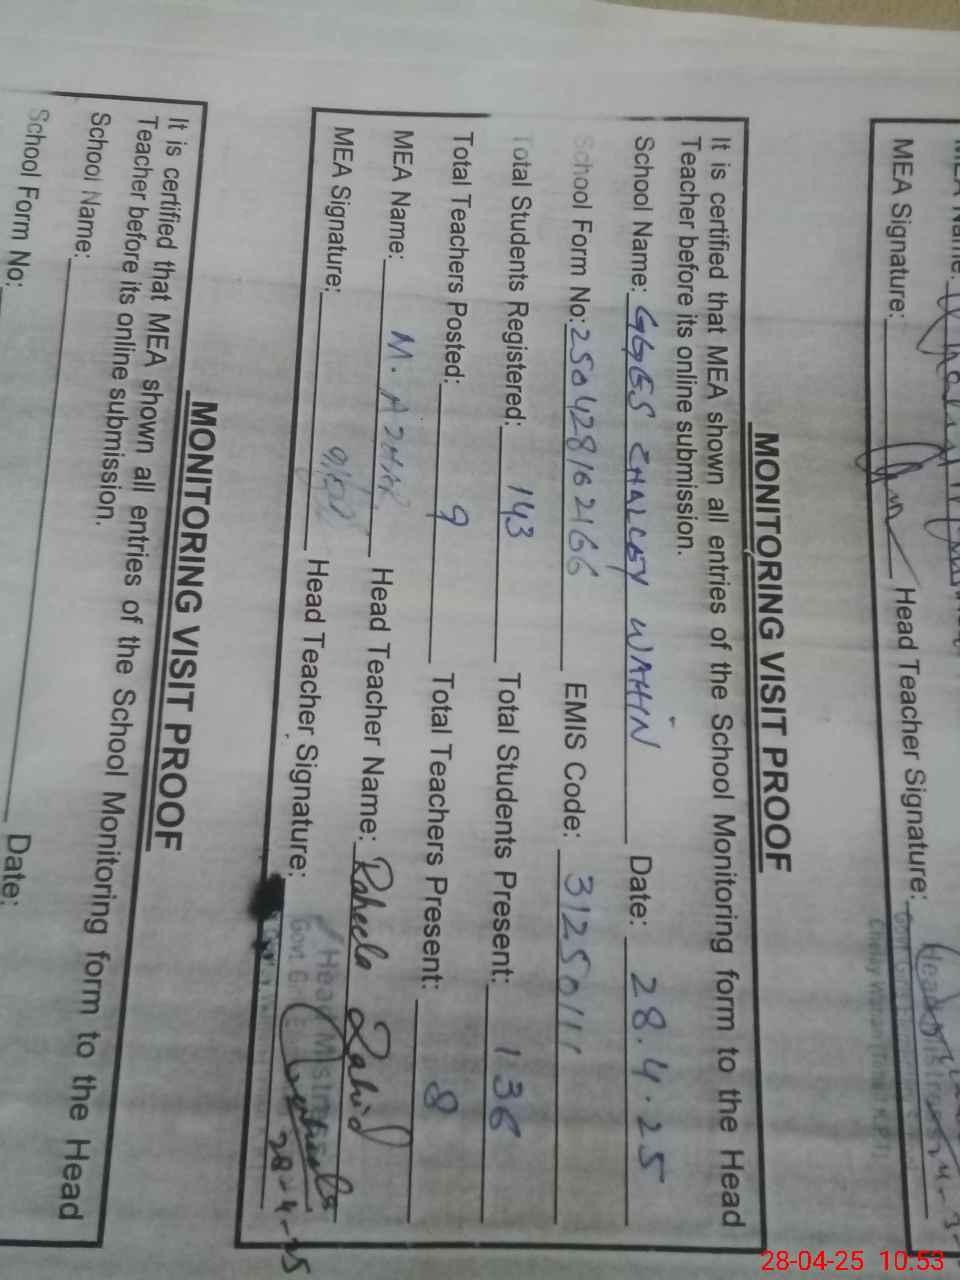 MEA Signature: Head Teacher Signature:
MONITORING VISIT PROOF
It is certified that MEA shown all entries of the School Monitoring form to the Head
Teacher before its online submission.
School Name: GGES CHALCEY WAHIN Date: 28.4.25
School Form No: 250428162166 EMIS Code: 31250111
Total Students Registered: 143 Total Students Present: 136
Total Teachers Posted: 9 Total Teachers Present: 8
MEA Name: M. AZHAR Head Teacher Name: Raheela Zahid
MEA Signature: Head Teacher Signature:
Head Mistress
28-4-25
MONITORING VISIT PROOF
It is certified that MEA shown all entries of the School Monitoring form to the Head
Teacher before its online submission.
School Name:
School Form No: Date:
28-04-25 10.53